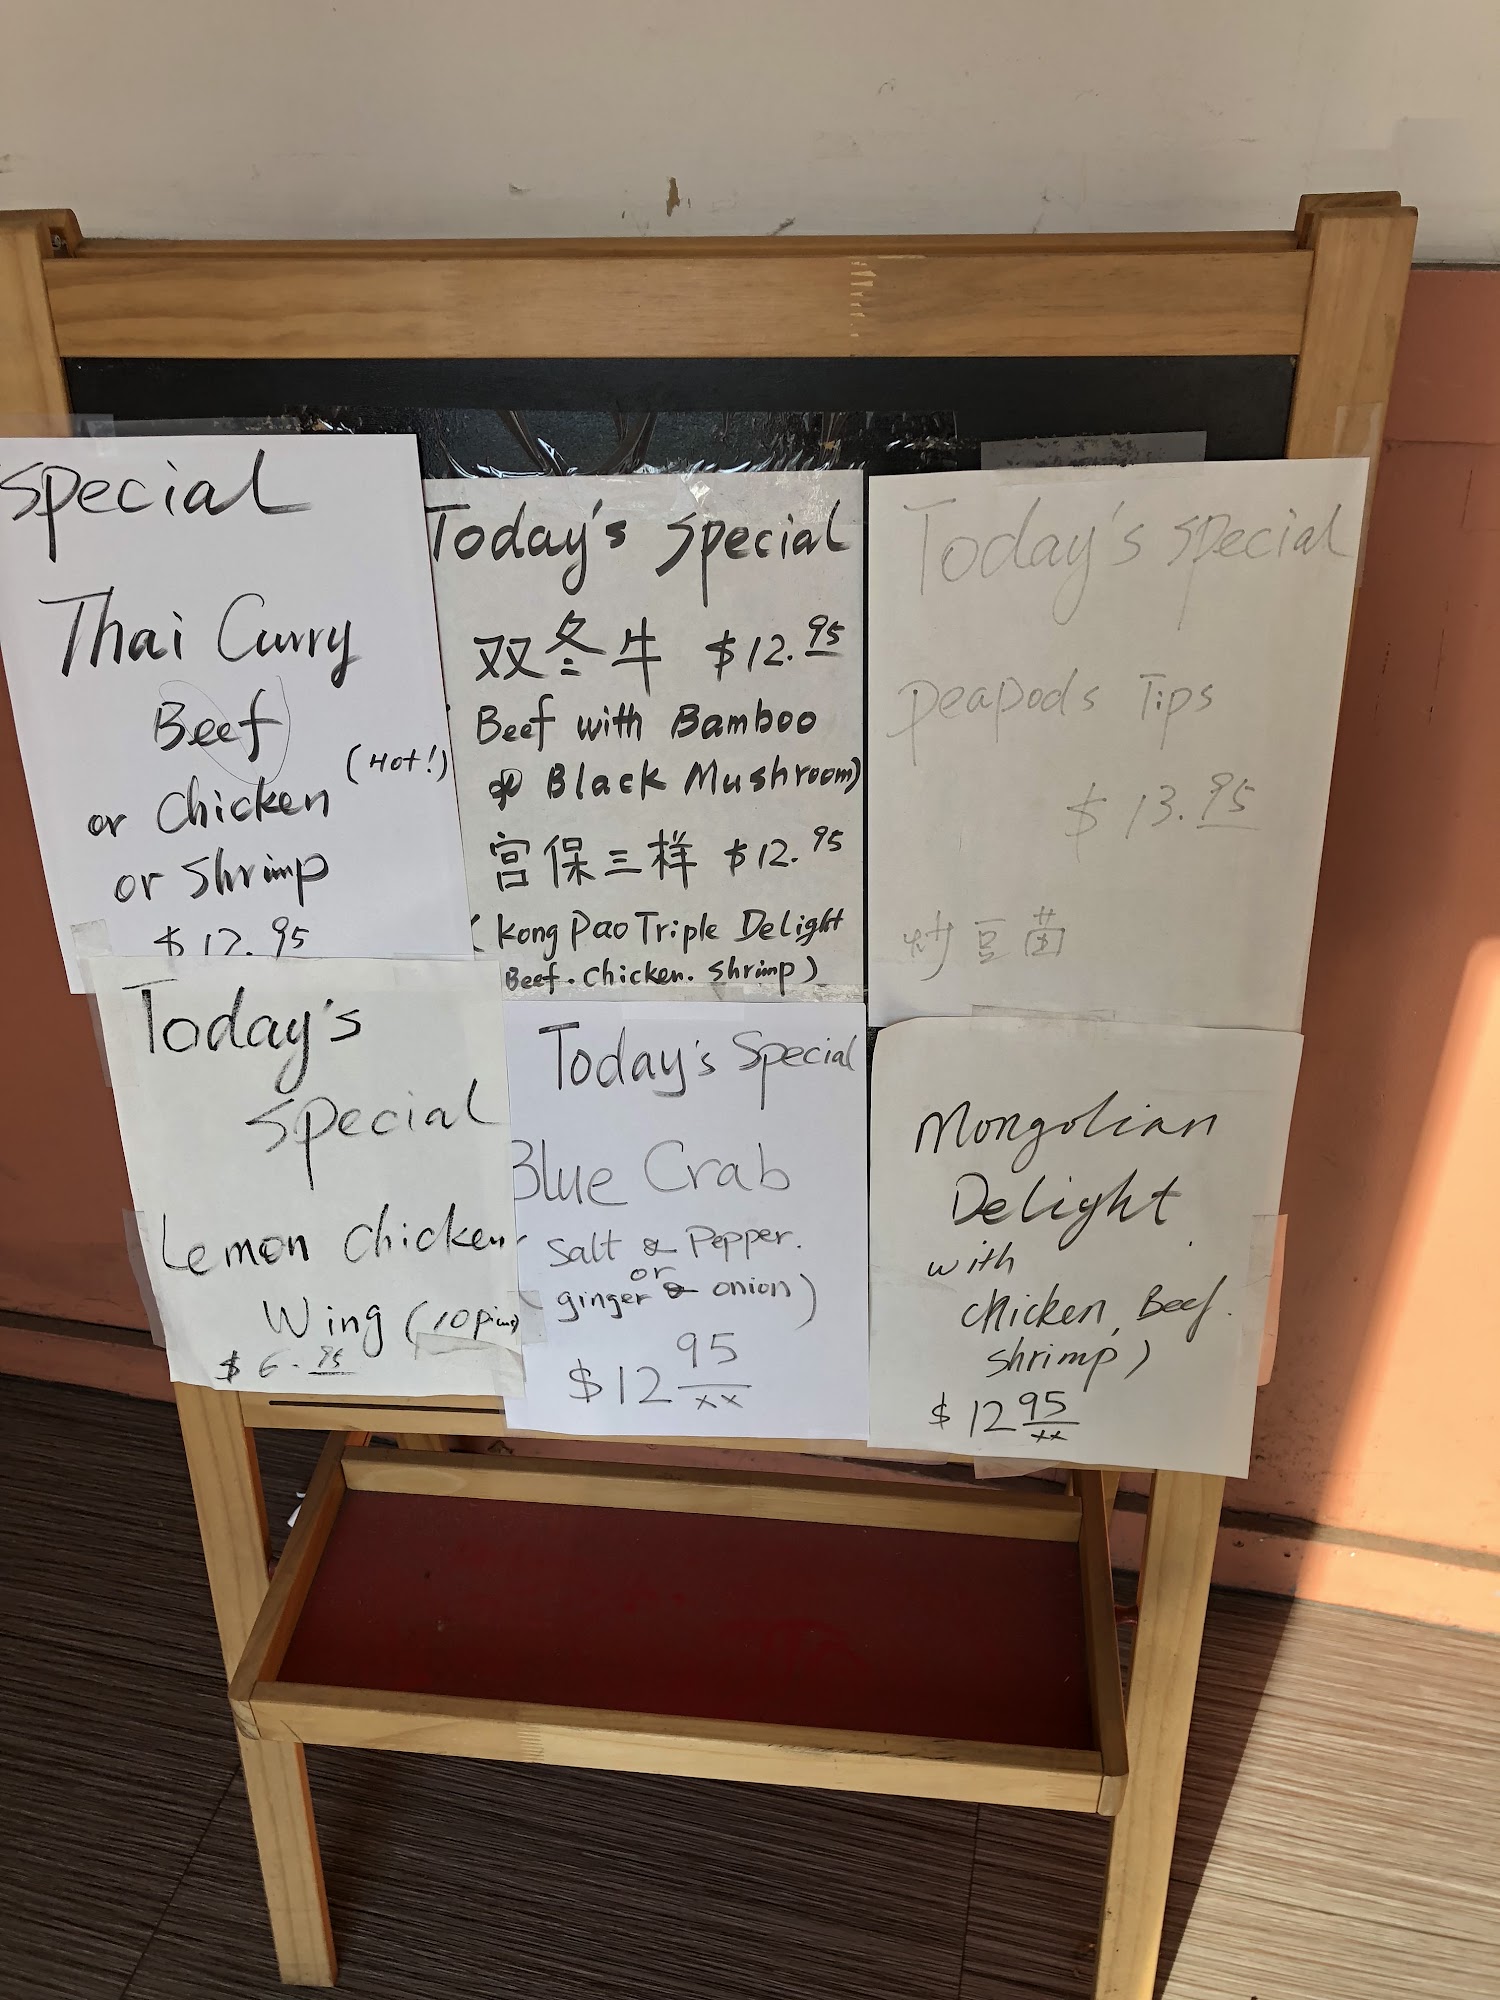 Special
Thai Curry
Beef
(Hot!)
or Chicken
or Shrimp
$12.95
Today's Special
双冬牛 $12.95
Beef with Bamboo
& Black Mushroom)
宫保三样 $12.95
(Kong Pao Triple Delight
Beef. Chicken. Shrimp)
Today's Special
Peapods Tips
$13.95
炒豆苗
Today's
Special
Lemon Chicken
Wing (10
$6.95
Today's Special
Blue Crab
Salt & Pepper.
or
ginger & onion)
$12 95
xx
Mongolian
Delight
with
Chicken, Beef.
Shrimp)
$12 95
xx